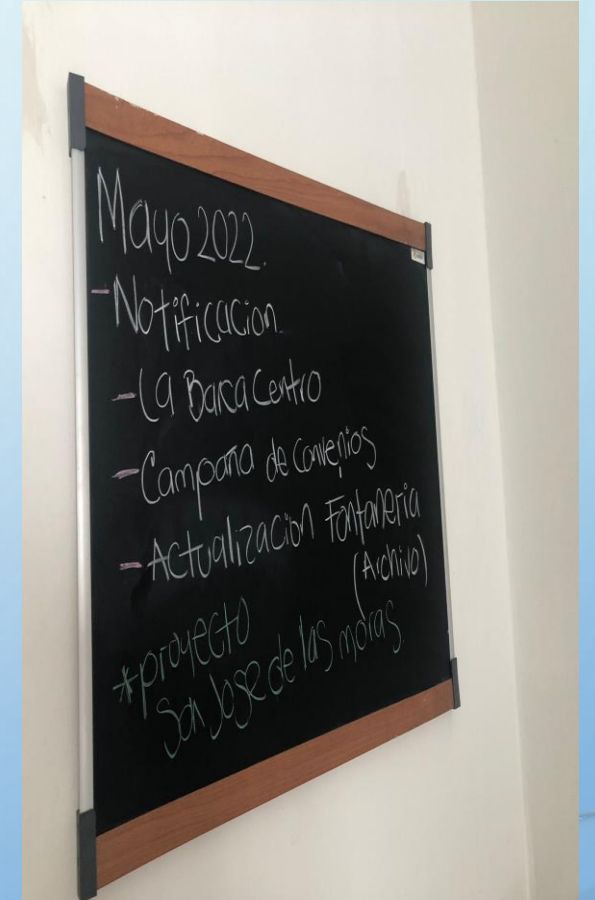 Mayo 2022.
- Notificacion.
- La Barca Centro
- Campaña de Convenios
- Actualizacion Fontaneria
(Archivo)
*proyecto
San Jose de las moras